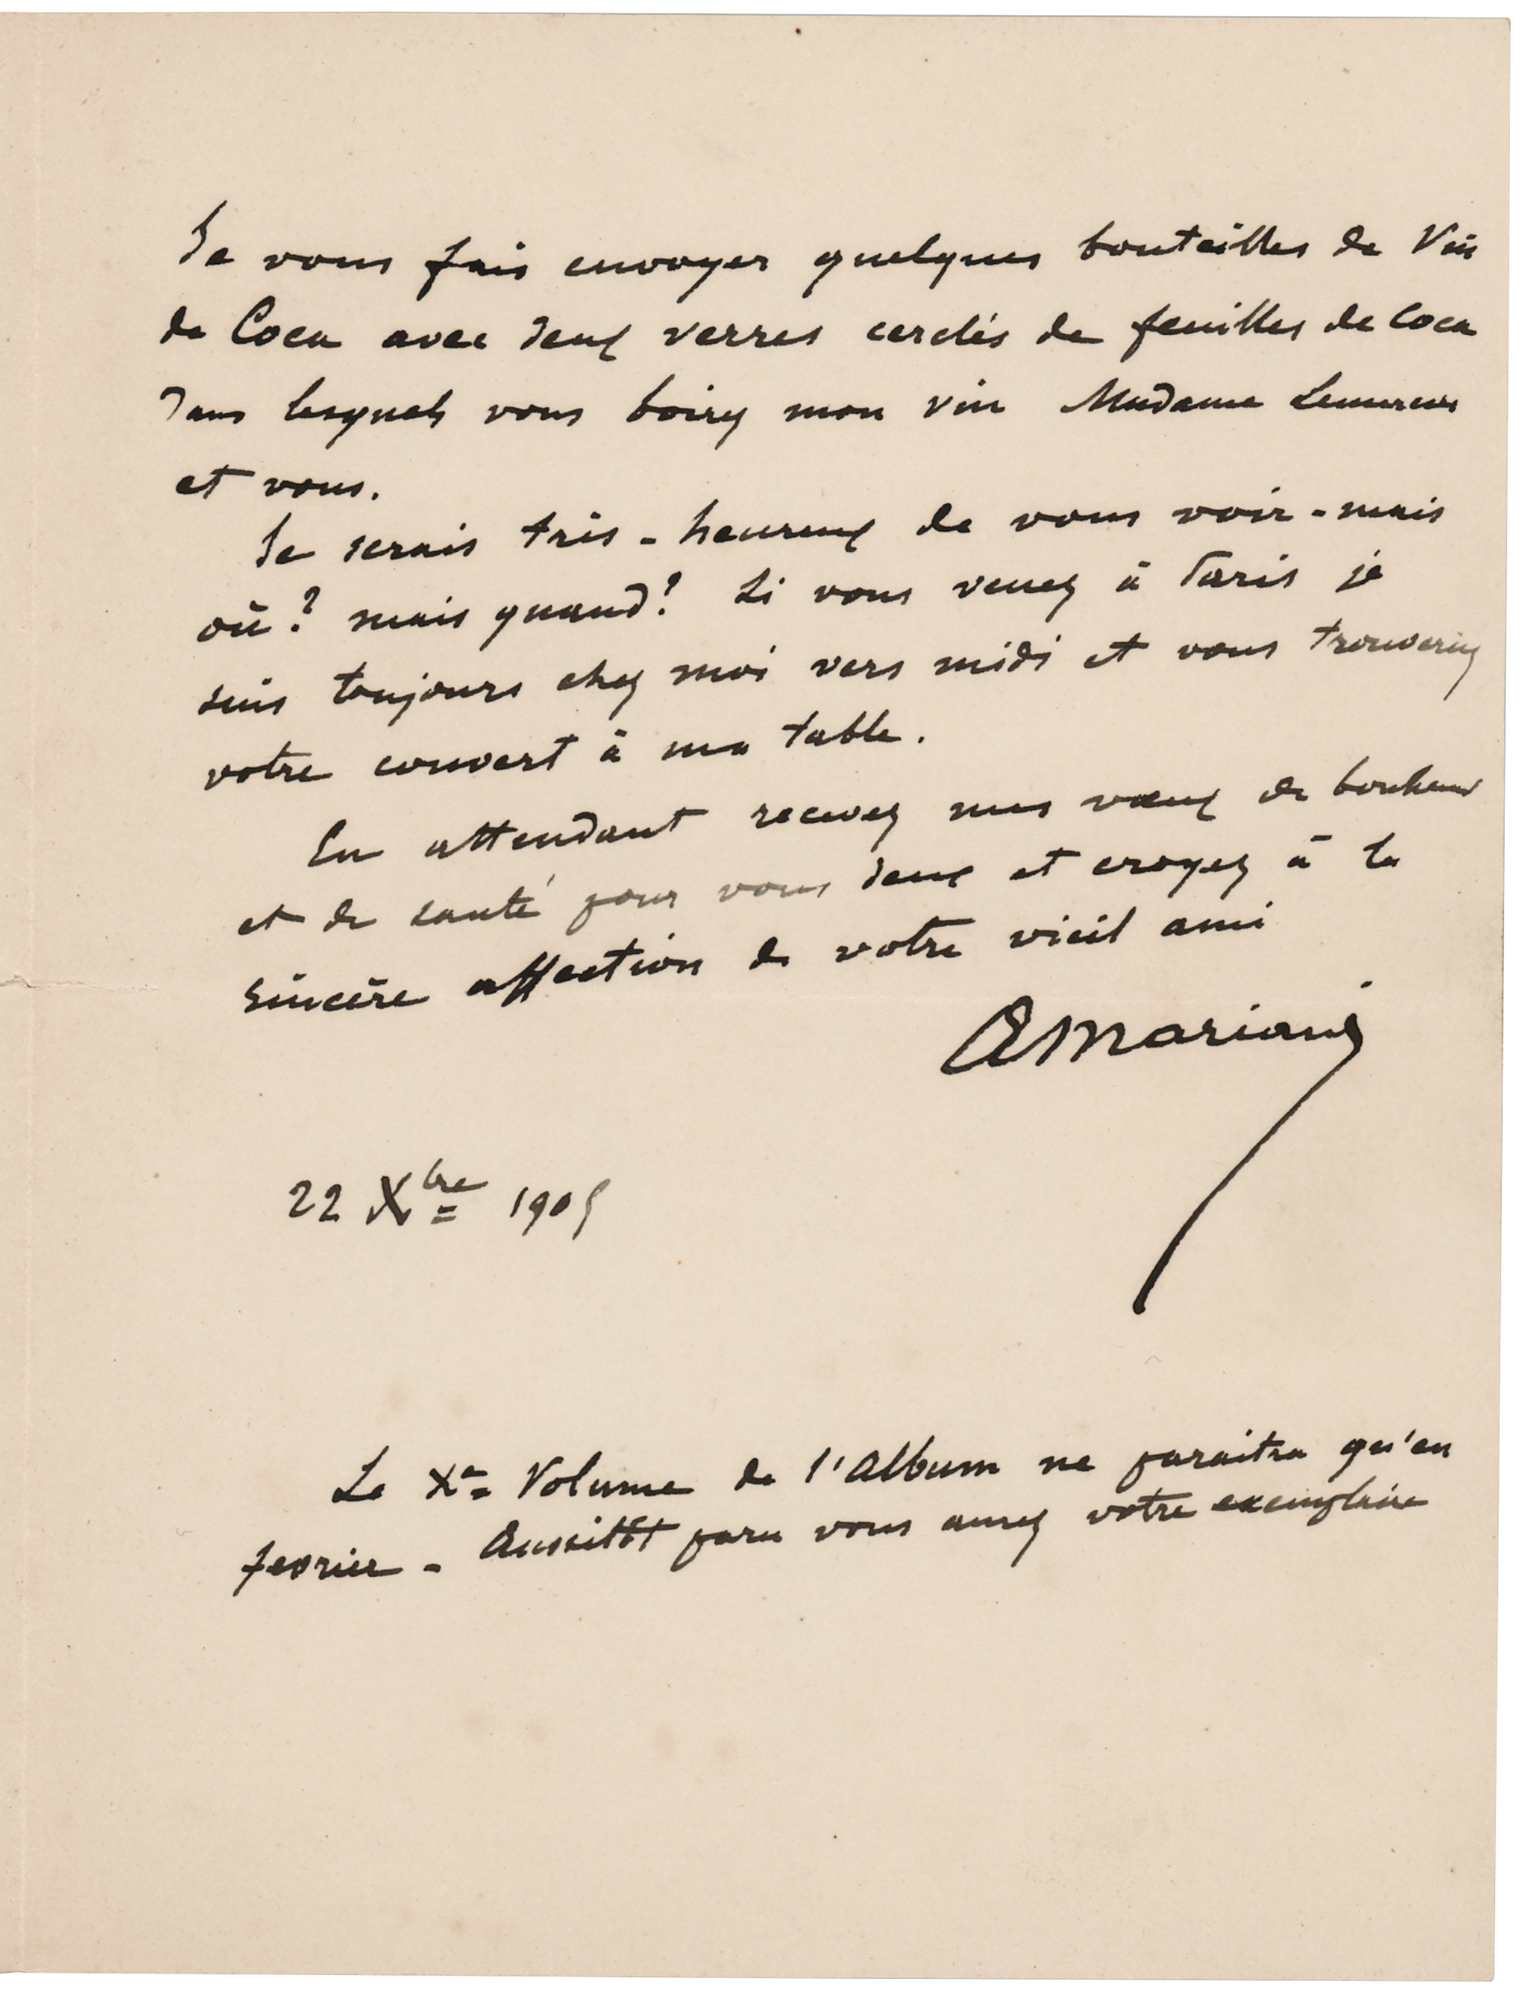 Je vous fais envoyer quelques bouteilles de Vin
de Coca avec deux verres cerclés de feuilles de Coca
dans lesquels vous boirez mon vin Madame
et vous.
Je serais très-heureux de vous voir - mais
où? mais quand? Si vous venez à Paris je
suis toujours chez moi vers midi et vous trouverez
votre couvert à ma table.
En attendant recevez mes vœux de bonheur
et de santé pour vous deux et croyez à la
sincère affection de votre vieil ami
A Mariani
22 Xbre 1905
Le Xe Volume de l'Album ne paraitra qu'en
fevrier - Aussitôt paru vous aurez votre exemplaire